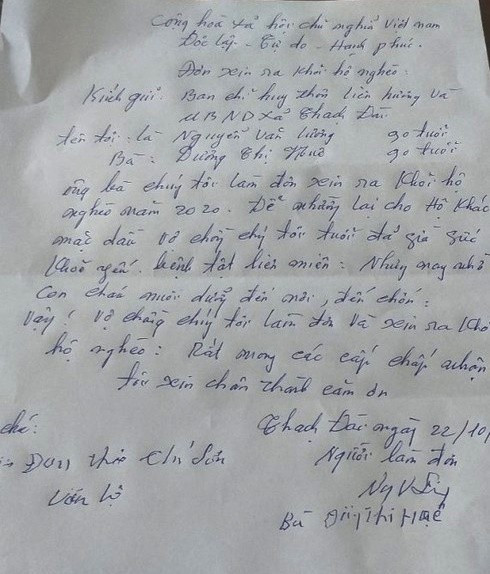 Cộng hoà xã hội chủ nghĩa Việt nam
Độc lập - Tự do - Hạnh phúc.
Đơn xin ra khỏi hộ nghèo:
Kính gửi. Ban chỉ huy thôn liên hương và
UBND xã Thạch Đài
tên tôi: là Nguyễn Văn Lương 90 tuổi
Bà: Dương Thị Huê 90 tuổi
ông bà chúng tôi làm đơn xin ra khỏi hộ
nghèo năm 2020. Để nhường lại cho Hộ khác
mặc dầu vợ chồng chúng tôi tuổi đã già sức
khoẻ yếu. bệnh tật liên miên: Nhưng nay nhờ
con cháu nuôi dưỡng đến nơi, đến chốn:
Vậy! Vợ chồng chúng tôi làm đơn và xin ra khỏ
hộ nghèo: Rất mong các cấp chấp nhận
tôi xin chân thành cảm ơn
Thạch Đài ngày 22/10/
chú: Người làm đơn
Đơn
Văn Lộ
Bà